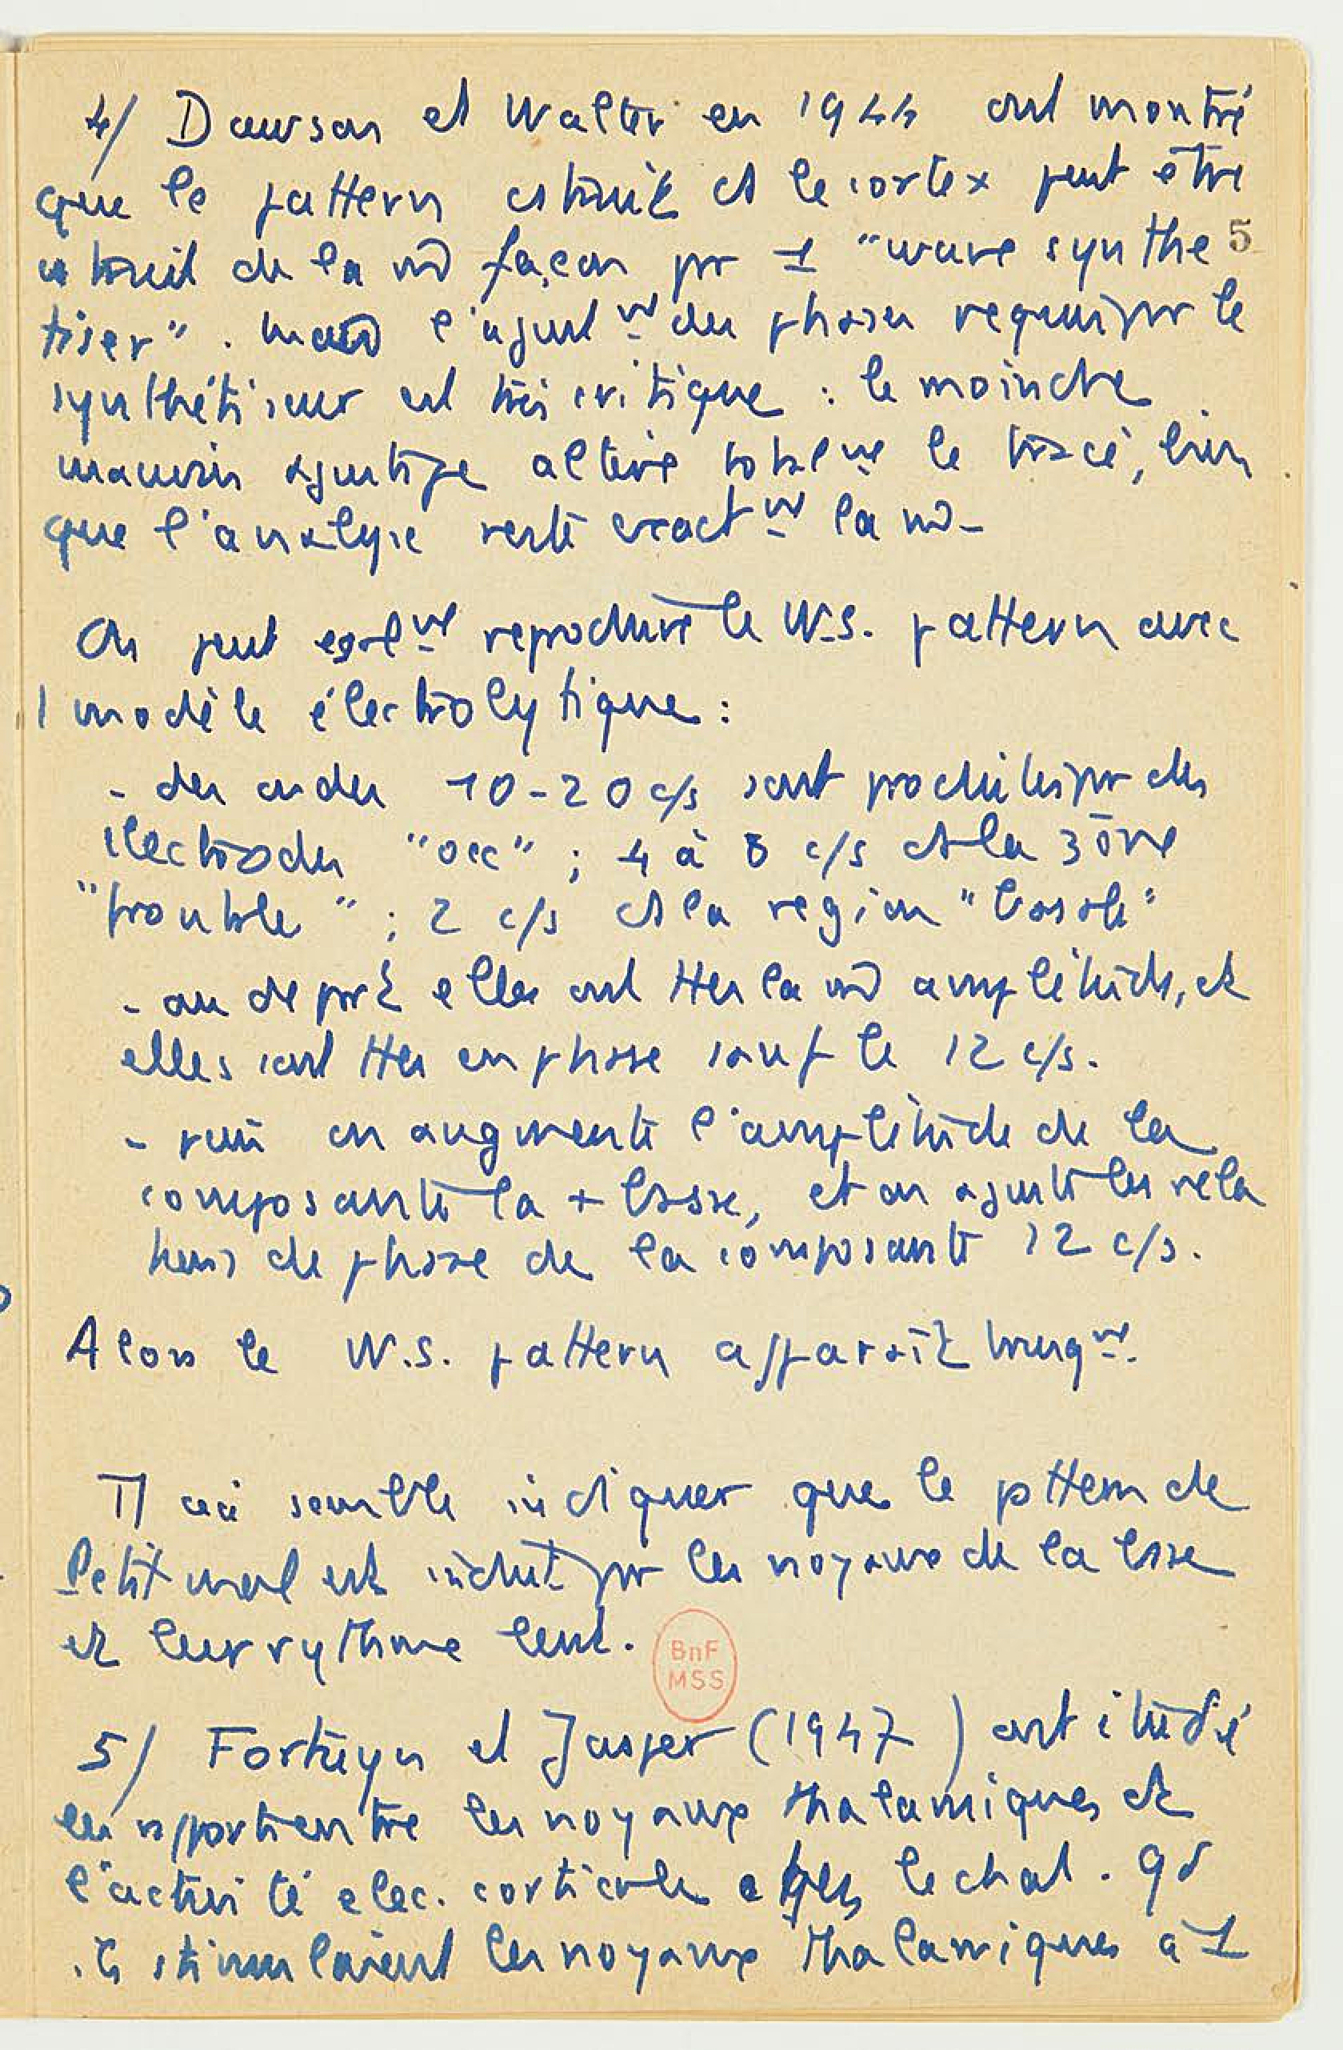 4/ Dawson et Walter en 1944 ont montré
que le pattern et le cortex peut être
de la m̄ façon pr 1 "wave synthe 5
tiser". Mais l'ajustmt des phases requis pr le
synthétiseur est très critique : le moindre
mauvais ajustage altère totalmt le tracé, bien
que l'analyse reste exactmt la m̄ -
On peut égalmt reproduire le W.S. pattern avec
1 modèle électrolytique :
- des ondes 10-20 c/s sont produites pr des
électrodes "occ" ; 4 à 8 c/s ds la zône
"frontale" ; 2 c/s ds la région "basale"
- au départ elles ont ttes la m̄ amplitude, et
elles sont ttes en phase sauf le 12 c/s.
- puis on augmente l'amplitude de la
composante la + basse, et on ajuste les rela
tions de phase de la composante 12 c/s.
Alors le W.S. pattern apparaît brusqmt.
Tt ceci semble indiquer que le pttern de
Petit mal est induit pr les noyaux de la base
et leur rythme lent.
BnF
MSS
5/ Forteyn et Jasper (1947) ont étudié
les rapports entre les noyaux thalamiques et
l'activité elec. corticale chez le chat. qd
ils stimulaient les noyaux thalamiques à 1